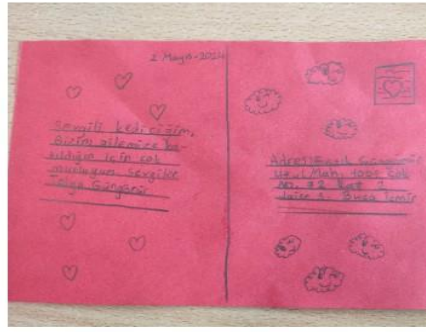 2 Mayıs-2024
Sevgili kediciğim,
Bizim ailemize ka-
tıldığın için çok
mutluyum Sevgiler
Güngörü
Adres:
Mah. 4001 Sok
No: 32 Kat 2
daire 3. Buca İzmir